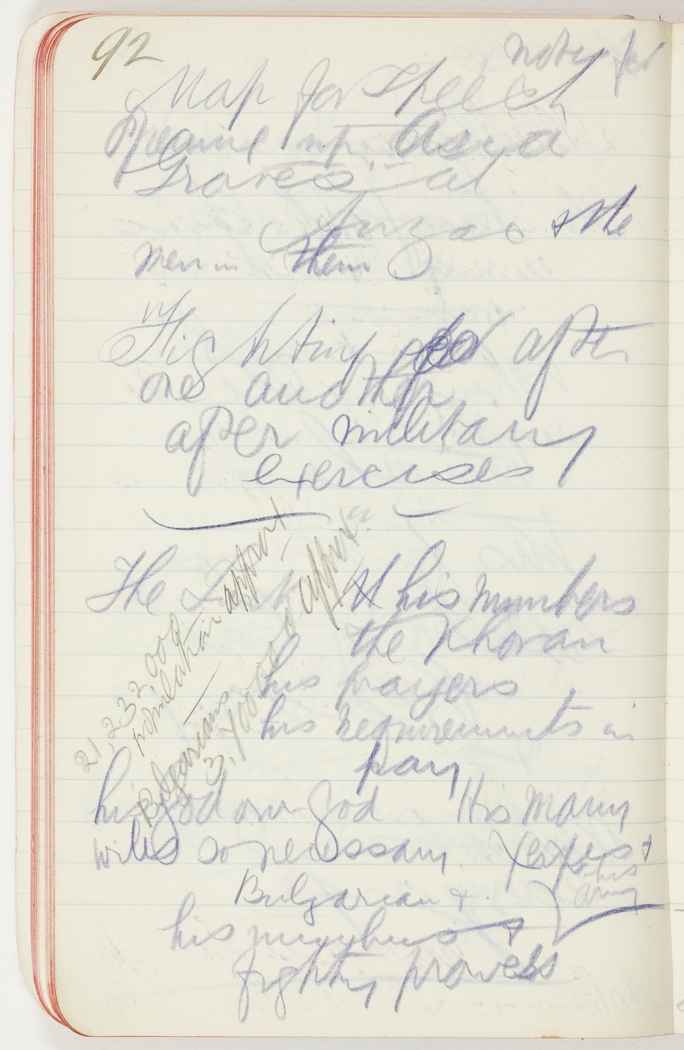 92
notes for
Map for Speech
Opening up Asya
Graves at
Anzac & the
men in them
"
Fighting after
one another
after military
exercises
"
The Turk his numbers
the Khoran
his prayers
his requirements in
pay
his god our God His many
wives so necessary. Xerxes &
his
army
Bulgarian &
his numbers &
fighting prowess
21,232,000
population approx
Bulgarians
approx